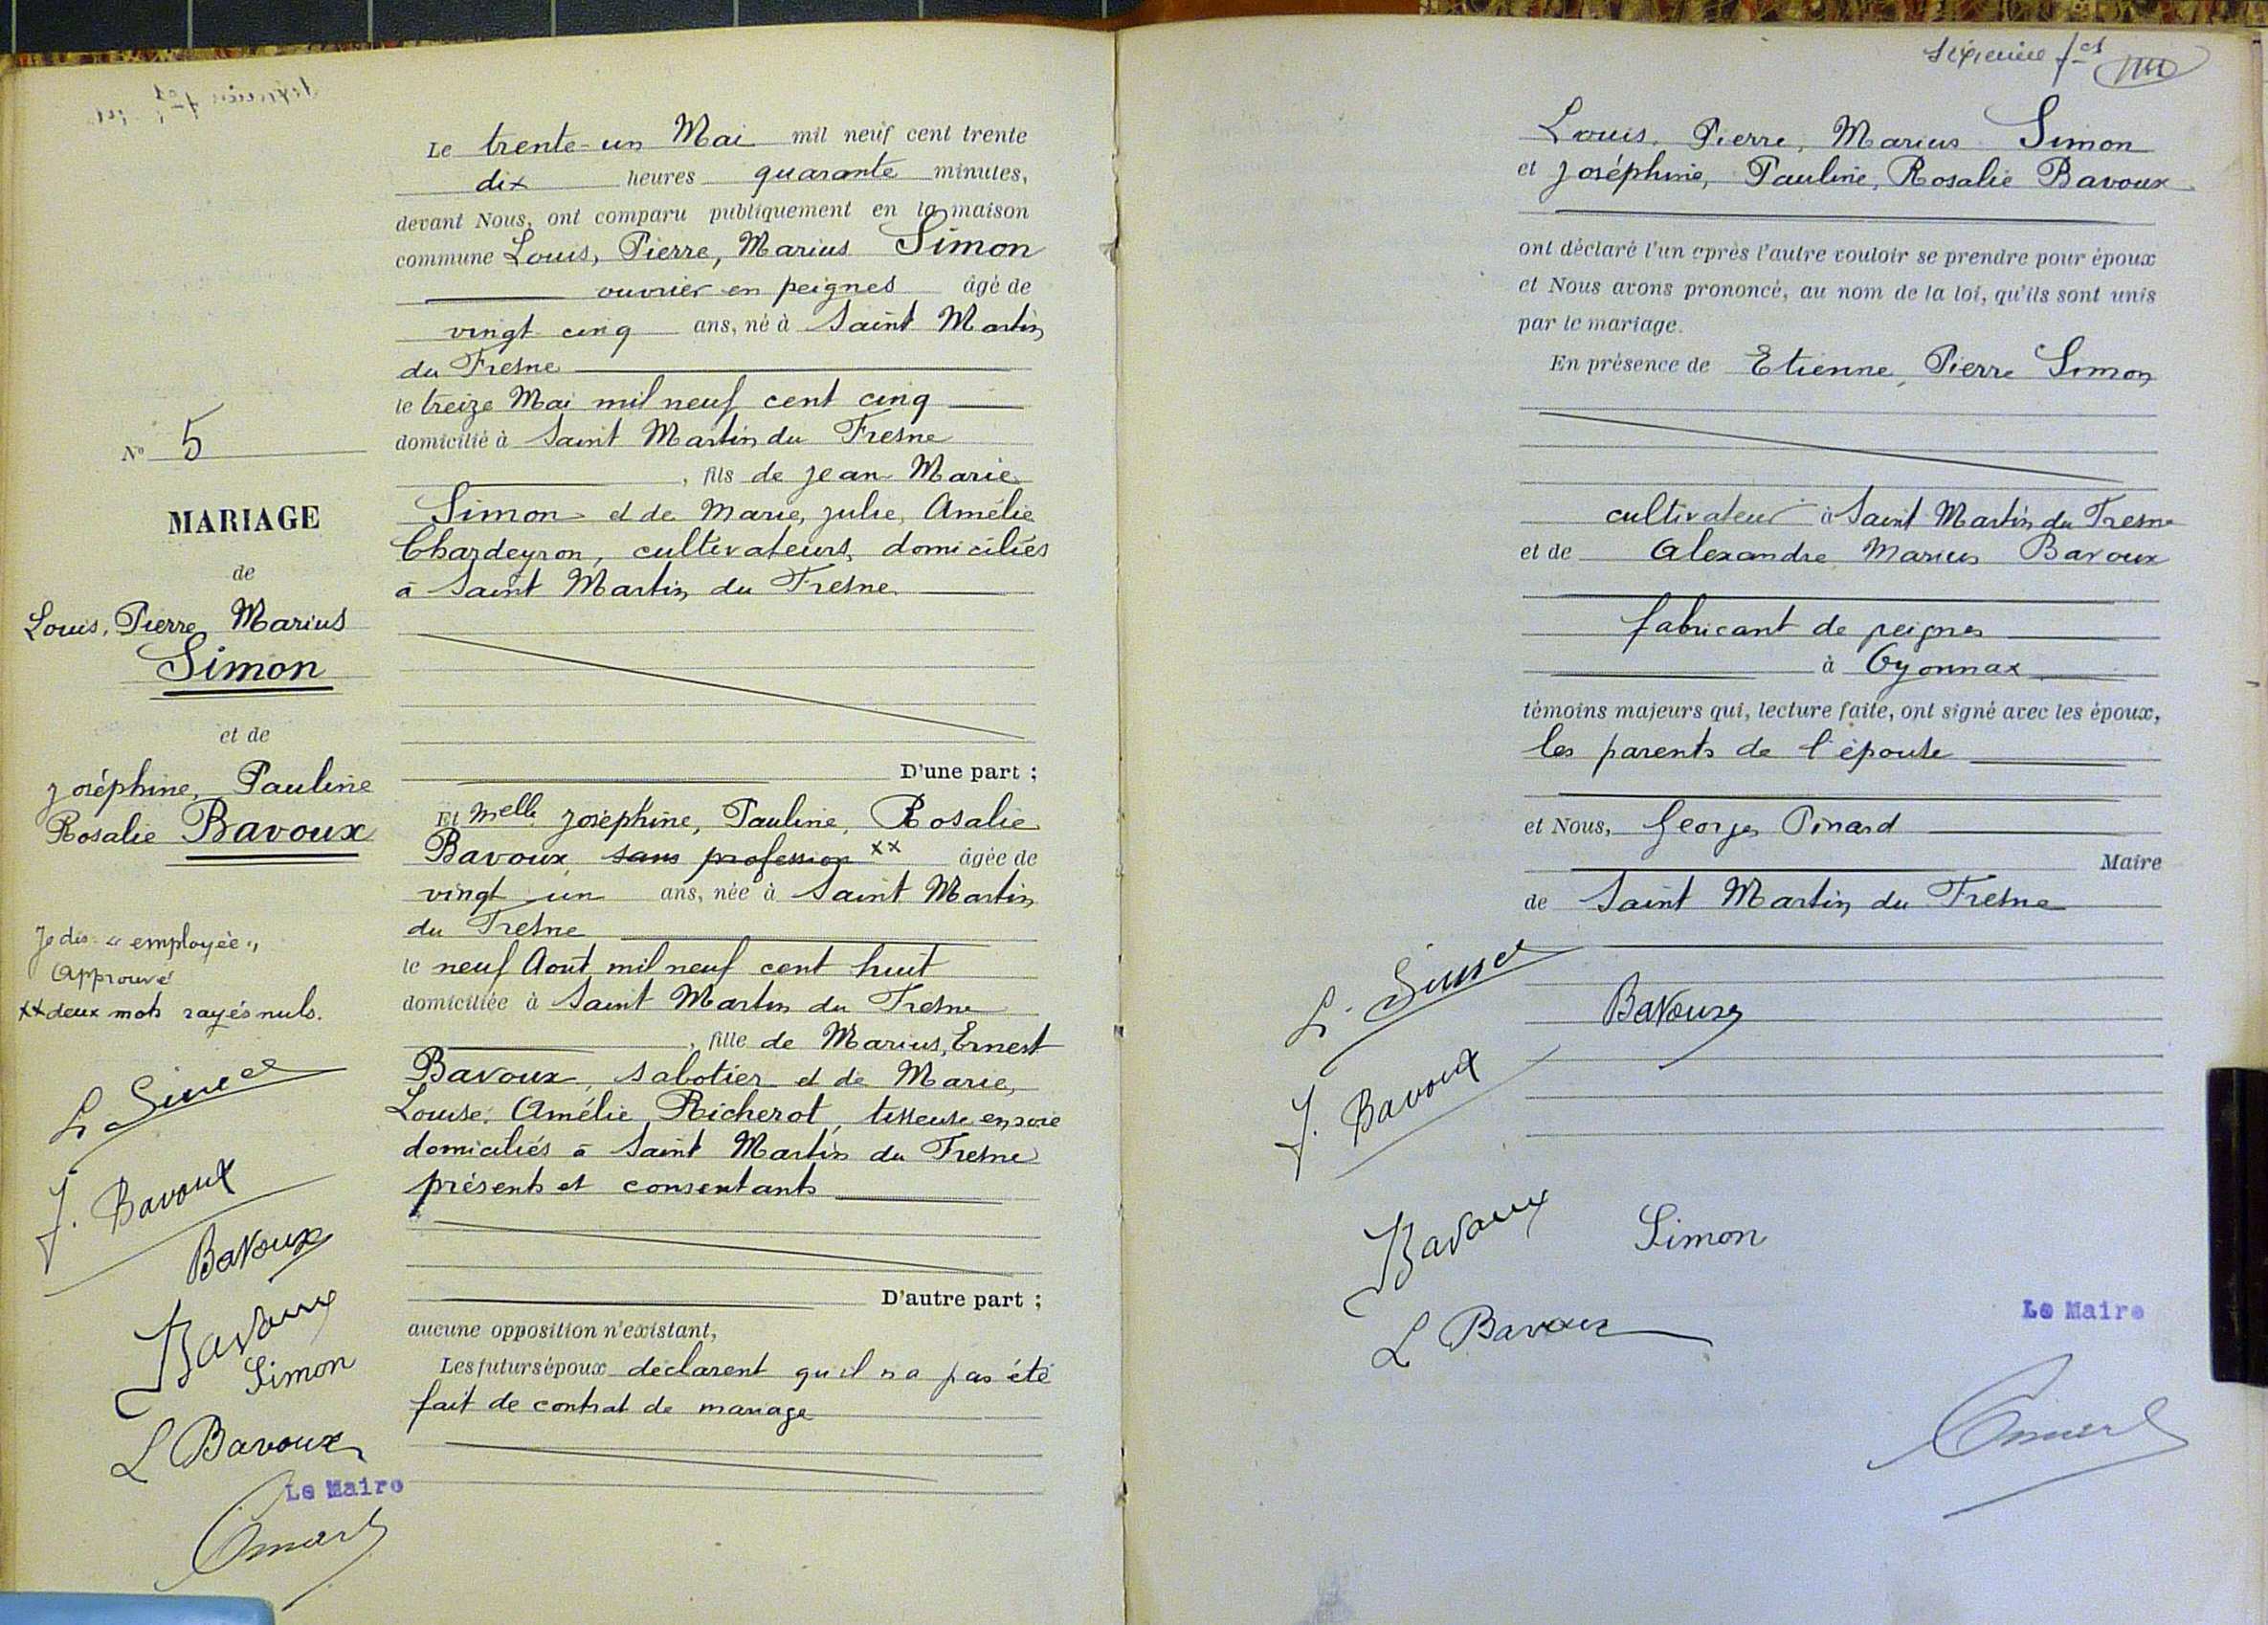 Le trente-un Mai mil neuf cent trente
dix heures quarante minutes,
devant Nous, ont comparu publiquement en la maison
commune Louis, Pierre, Marius Simon
ouvrier en peignes âgé de
vingt cinq ans, né à Saint Martin
du Fresne
le treize Mai mil neuf cent cinq
domicilié à Saint Martin du Fresne
, fils de Jean Marie
Simon et de Marie, Julie, Amélie
Chardeyron, cultivateurs, domiciliés
à Saint Martin du Fresne
D'une part ;
Et Melle Joséphine, Pauline, Rosalie
Bavoux, sans profession xx âgée de
vingt un ans, née à Saint Martin
du Fresne
le neuf Août mil neuf cent huit
domiciliée à Saint Martin du Fresne
, fille de Marius, Ernest
Bavoux, sabotier et de Marie,
Louise, Amélie Richerot, tisseuse en soie
domiciliés à Saint Martin du Fresne
présents et consentants
D'autre part ;
aucune opposition n'existant,
Les futurs époux déclarent qu'il n'a pas été
fait de contrat de mariage
N° 5
MARIAGE
de
Louis, Pierre Marius
Simon
et de
Joséphine, Pauline
Rosalie Bavoux
Je dis "employée"
Approuvé
xx deux mots rayés nuls.
L. Simon
J. Bavoux
Bavoux
Bavoux
Simon
L Bavoux
Le Maire
Louis, Pierre, Marius Simon
et Joséphine, Pauline, Rosalie Bavoux
ont déclaré l'un après l'autre vouloir se prendre pour époux
et Nous avons prononcé, au nom de la loi, qu'ils sont unis
par le mariage.
En présence de Etienne, Pierre Simon
cultivateur à Saint Martin du Fresne
et de Alexandre Marius Bavoux
fabricant de peignes
à Oyonnax
témoins majeurs qui, lecture faite, ont signé avec les époux,
les parents de l'épouse
et Nous, Georges Pinard
Maire
de Saint Martin du Fresne
L. Simon
Bavoux
J. Bavoux
Bavoux
Simon
L Bavoux
Le Maire